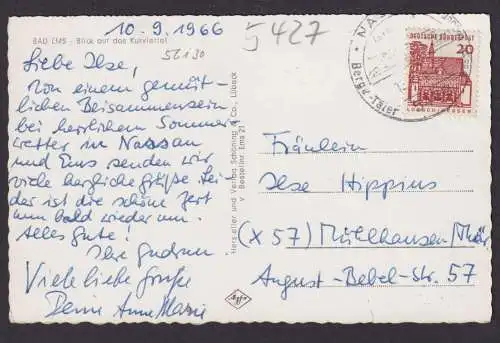 10.9.1966
5427
BAD EMS - Blick auf das Kurviertel
56130
Liebe Ilse,
Von einem gemüt-
lichen Beisammensein
bei herrlichem Sommer
wetter in Nassau
und Ems senden wir
viele herzliche Grüße. Lei-
der ist die schöne Zeit
nun bald wieder um.
Alles Gute!
Ihre Gudrun
Viele liebe Grüße
Deine Anne Marie
Hersteller und Verlag Schöning & Co., Lübeck
Bestellnr. Ems 21
Agfa
NAS
Berge-Täler
DEUTSCHE BUNDESPOST
20
LORSCH/HESSEN
Fräulein
Ilse Hippius
(X 57) Mühlhausen/Thür
August-Bebel-Str. 57